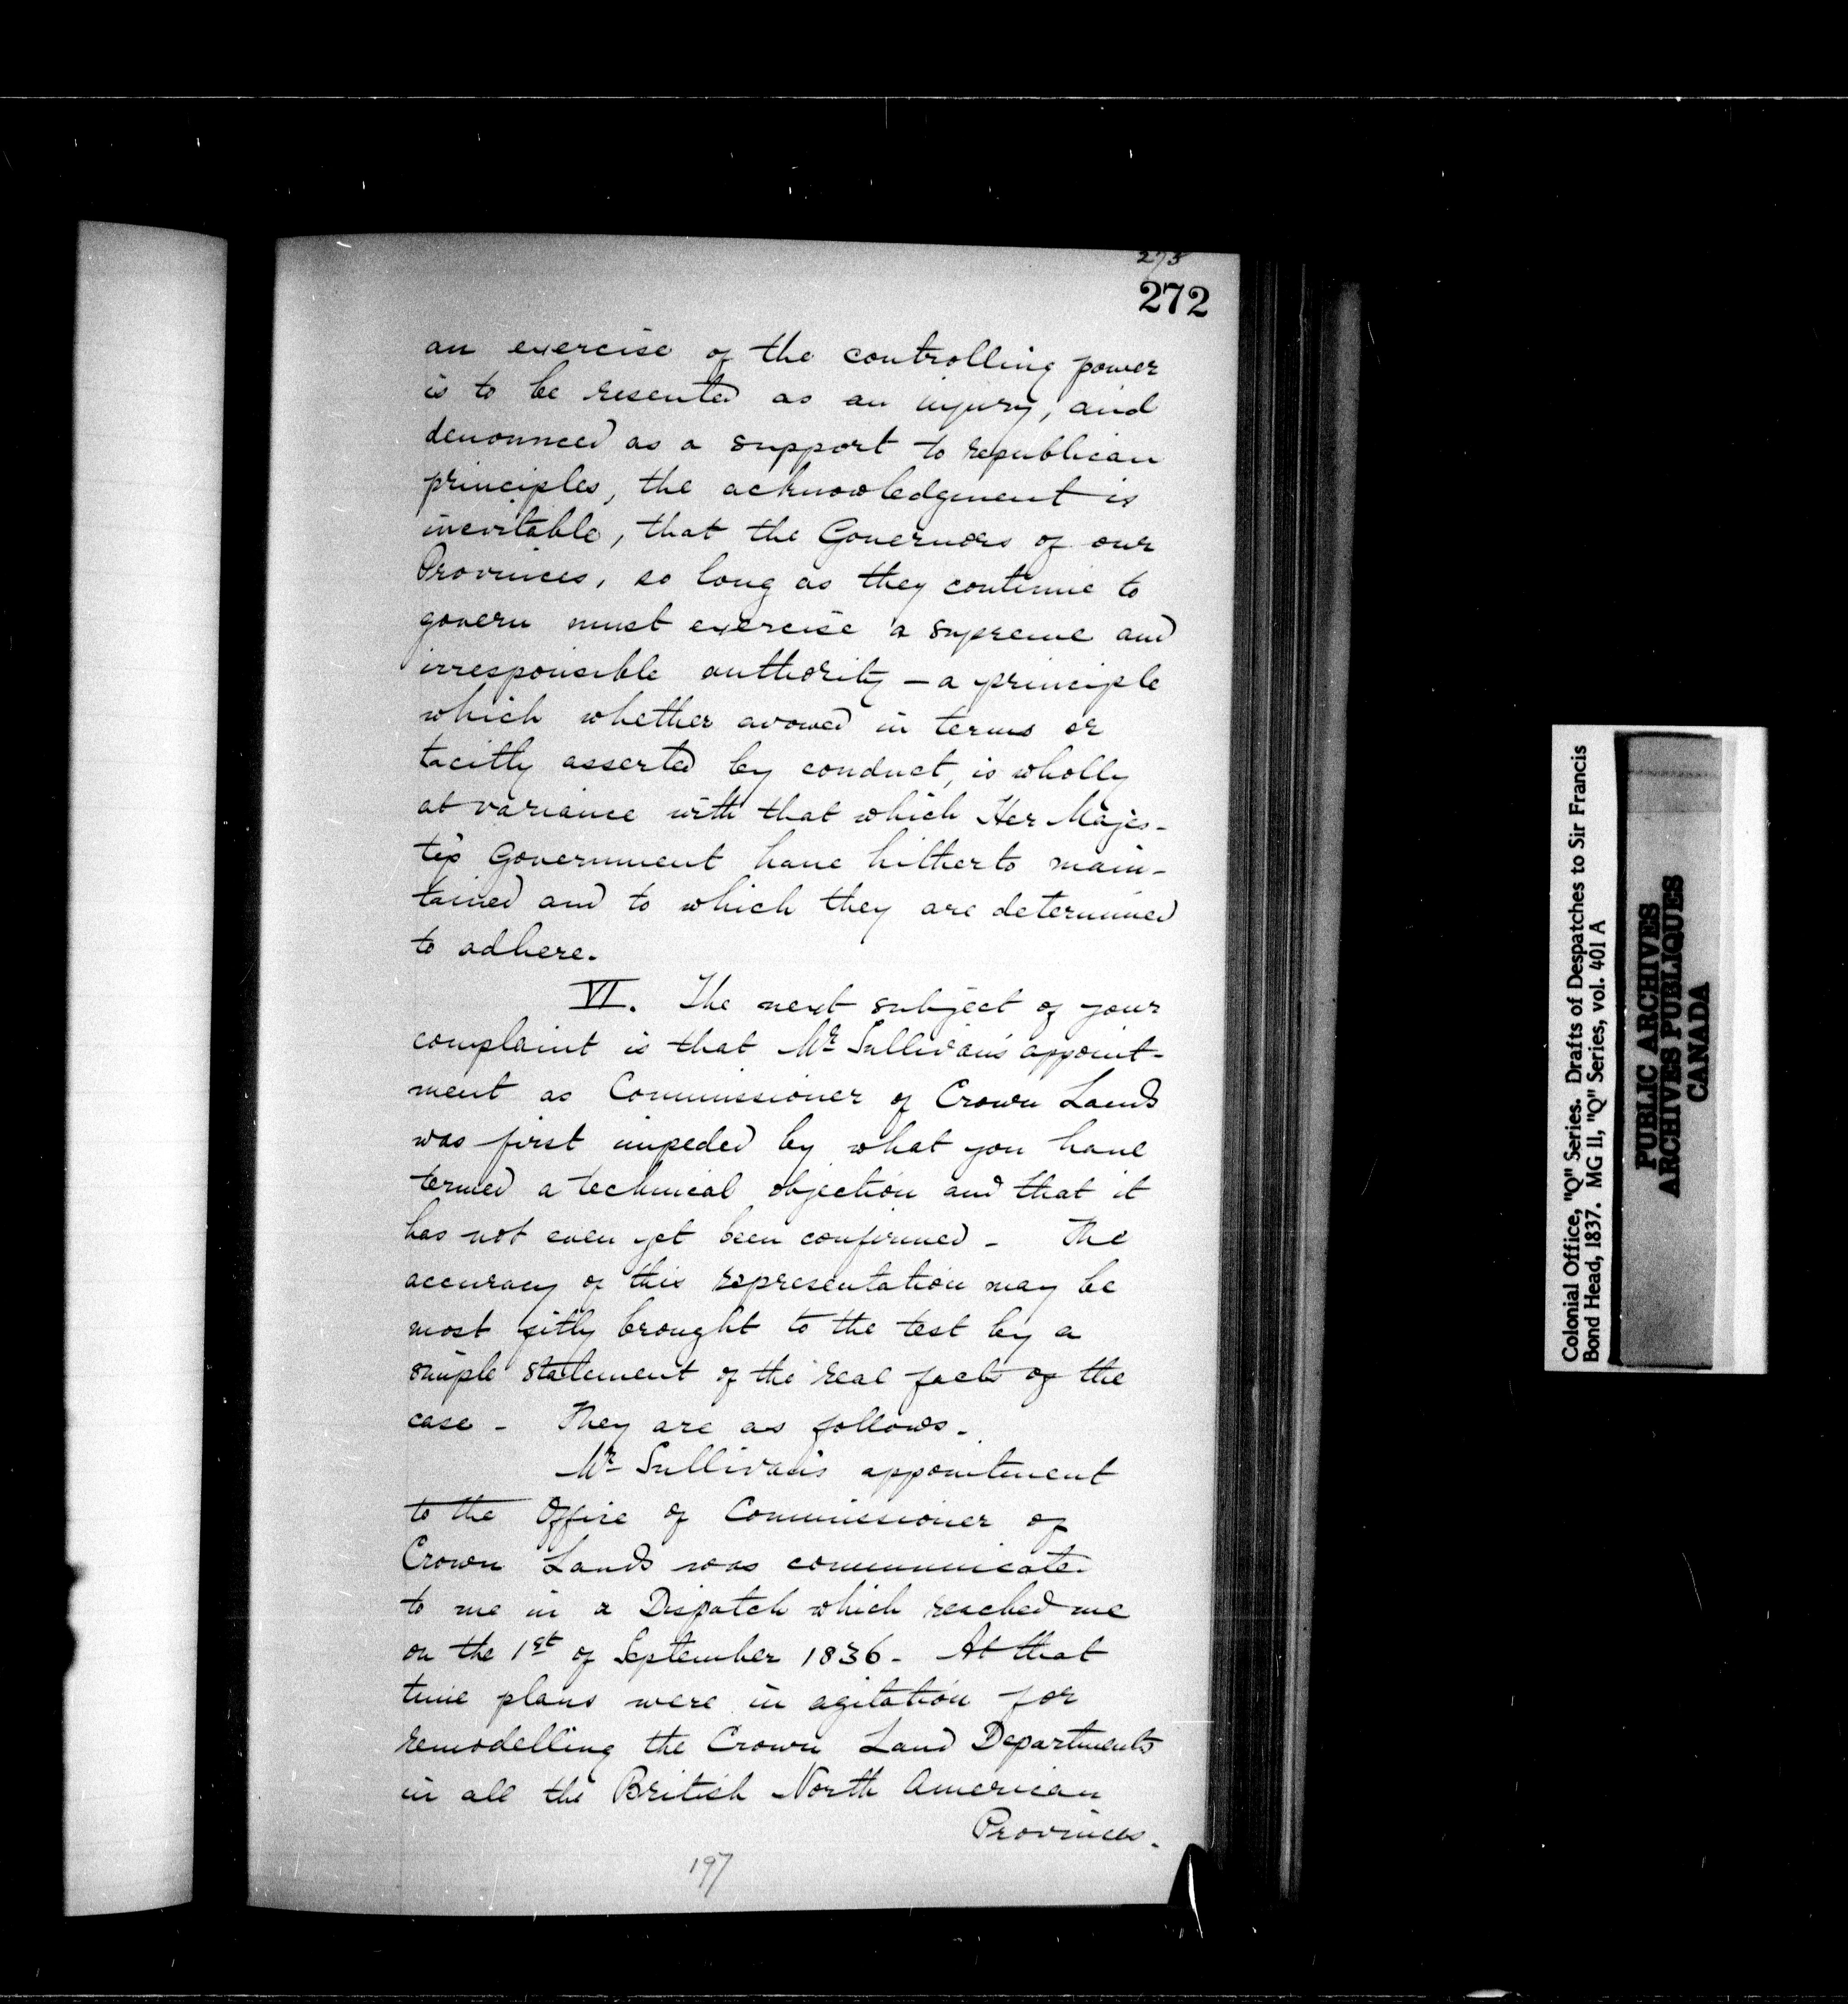 273
272
an exercise of the controlling power
is to be resented as an injury, and
denounced as a support to republican
principles, the acknowledgment is
inevitable, that the Governors of our
Provinces, so long as they continue to
govern must exercise a supreme and
irresponsible authority – a principle
which whether avowed in terms or
tacitly asserted by conduct, is wholly
at variance with that which Her Majes-
ty's Government have hitherto main-
tained and to which they are determined
to adhere.
VI. The next subject of your
complaint is that Mr Sullivan's appoint-
ment as Commissioner of Crown Lands
was first impeded by what you have
termed a technical objection and that it
has not even yet been confirmed – The
accuracy of this representation may be
most fitly brought to the test by a
simple statement of the real facts of the
case – They are as follows.
Mr Sullivan's appointment
to the Office of Commissioner of
Crown Lands was communicate
to me in a Dispatch which reached me
on the 1st of September 1836 – At that
time plans were in agitation for
remodelling the Crown Land Departments
in all the British North American
Provinces.
197
Colonial Office, "Q" Series. Drafts of Despatches to Sir Francis
Bond Head, 1837. MG 11, "Q" Series, vol. 401 A
PUBLIC ARCHIVES
ARCHIVES PUBLIQUES
CANADA